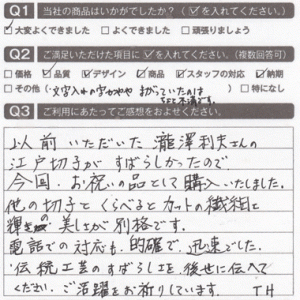 Q1 当社の商品はいかがでしたか？(✓を入れてください。)
☑大変よくできました □よくできました □頑張りましょう
Q2 ご満足いただけた項目に✓を入れてください。(複数回答可)
□価格 ☑品質 ☑デザイン □商品 ☑スタッフの対応 ☑納期
□その他(・文字入れの字がやや まがっていたのは 不満です。) □特になし
Q3 ご利用にあたってご感想をおよせください。
以前いただいた 瀧澤利夫さんの
江戸切子が すばらしかったので
今回、お祝いの品として購入いたしました。
他の切子と くらべるとカットの繊細と
輝きの美しさが別格です。
電話での対応も、的確で、迅速でした。
伝統工芸のすばらしさを、後世に伝えて
ください。ご活躍をお祈りしています。 TH